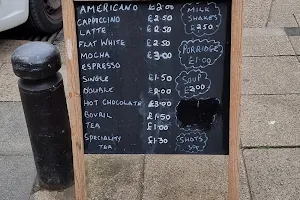 AMERICANO £2.00
CAPPUCCINO £2.50
LATTE £2.50
FLAT WHITE £2.50
MOCHA £3.00
ESPRESSO
SINGLE £1.50
DOUBLE £2.00
HOT CHOCOLATE £3.00
BOVRIL £1.50
TEA £1.00
SPECIALITY £1.30
TEA
MILK
SHAKES
£2.50
PORRIDGE
£1.00
SOUP
£2.00
SHOTS
50p